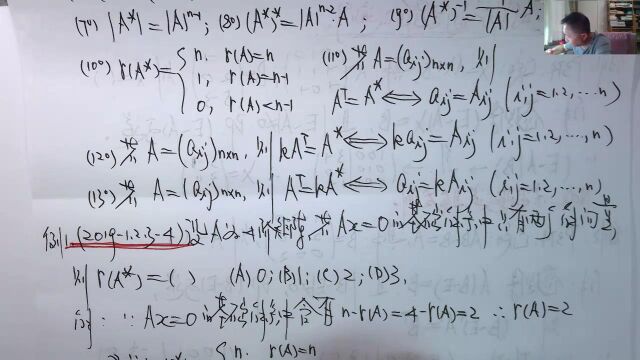 (7°) |A*| = |A|ⁿ⁻¹; (8°) (A*)* = |A|ⁿ⁻²·A; (9°) (A*)⁻¹ = 1/|A| A;
(10°) r(A*) = { n, r(A)=n
1, r(A)=n-1
0, r(A)<n-1
(11°) 若 A=(aij)n×n, 则
Aᵀ=A* ⟺ aij=Aij (i,j=1,2,…n)
(12°) 若 A=(aij)n×n, 则 kAᵀ=A* ⟺ kaij=Aij (i,j=1,2,…,n)
(13°) 若 A=(aij)n×n, 则 Aᵀ=kA* ⟺ aij=kAij (i,j=1,2,…,n)
例1 (2019-1.2.3-4) 设A为4阶矩阵, 若 Ax=0 的基础解系中只有两个向量,
则 r(A*)=( ) (A) 0; (B) 1; (C) 2; (D) 3.
解: ∵ Ax=0 的基础解系含有 n-r(A)=4-r(A)=2 ∴ r(A)=2
{ n, r(A)=n